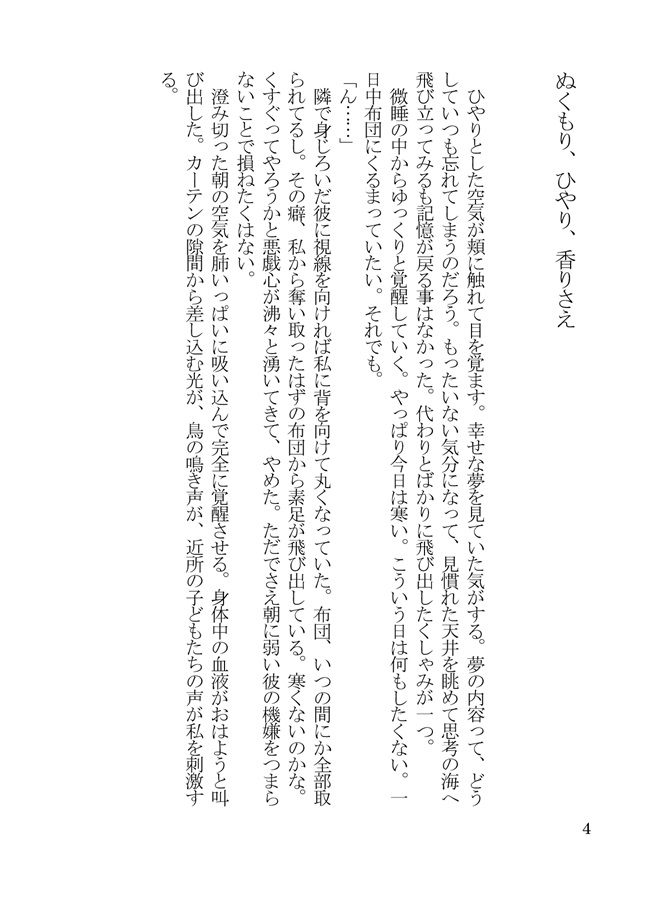 ぬくもり、ひやり、香りさえ
　ひやりとした空気が頬に触れて目を覚ます。幸せな夢を見ていた気がする。夢の内容って、どう
していつも忘れてしまうのだろう。もったいない気分になって、見慣れた天井を眺めて思考の海へ
飛び立ってみるも記憶が戻る事はなかった。代わりとばかりに飛び出したくしゃみが一つ。
　微睡の中からゆっくりと覚醒していく。やっぱり今日は寒い。こういう日は何もしたくない。一
日中布団にくるまっていたい。それでも。
「ん……」
　隣で身じろいだ彼に視線を向ければ私に背を向けて丸くなっていた。布団、いつの間にか全部取
られてるし。その癖、私から奪い取ったはずの布団から素足が飛び出している。寒くないのかな。
くすぐってやろうかと悪戯心が沸々と湧いてきて、やめた。ただでさえ朝に弱い彼の機嫌をつまら
ないことで損ねたくはない。
　澄み切った朝の空気を肺いっぱいに吸い込んで完全に覚醒させる。身体中の血液がおはようと叫
び出した。カーテンの隙間から差し込む光が、鳥の鳴き声が、近所の子どもたちの声が私を刺激す
る。
4